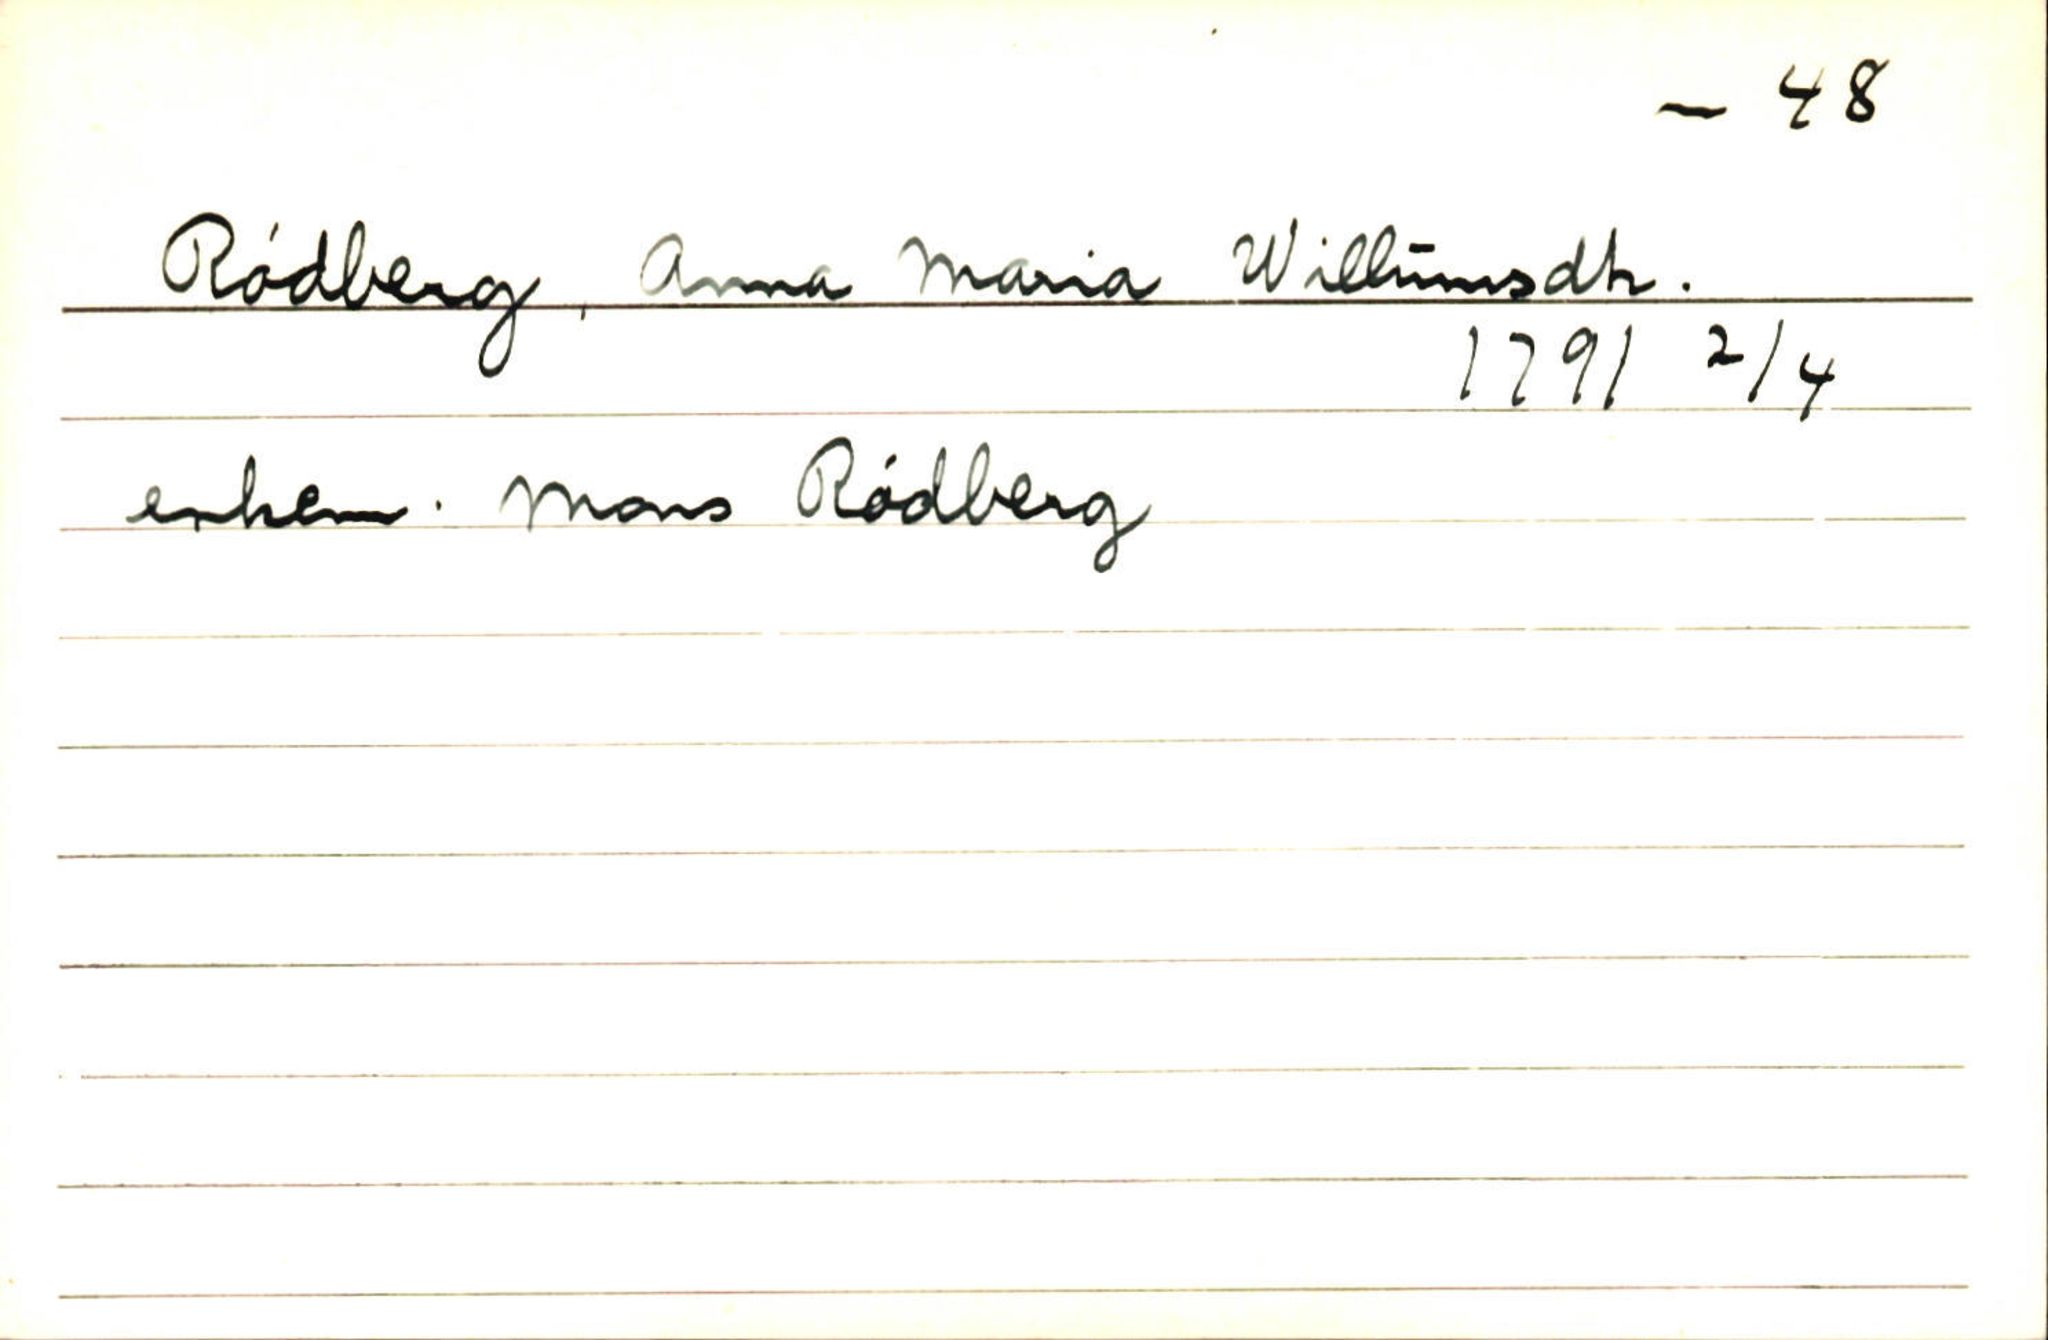 — 48
Ródberg, Anna Maria Willumsdtr.
1791 2/4
enkem. Mons Ródberg